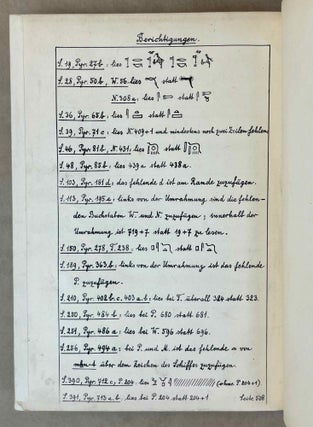 Berichtigungen.
S. 19, Pyr. 27b: lies statt
S. 28, Pyr. 50b, W. 56 lies statt
N. 308a: lies statt
S. 36, Pyr. 68b: lies statt
S. 39, Pyr. 71c: lies N. 409+1 und mindestens noch zwei Zeilen fehlen
S. 46, Pyr. 81b, N. 431: lies statt
S. 48, Pyr. 85b: lies 439a statt 438a.
S. 103, Pyr. 181d: das fehlende d ist am Rande zuzufügen.
S. 113, Pyr. 195a: links von der Umrahmung sind die fehlen-
den Buchstaben W. und N. zuzufügen; innerhalb der
Umrahmung ist 719+7 statt 19+7 zu lesen.
S. 150, Pyr. 278, T. 238: lies statt
S. 189, Pyr. 363b: links von der Umrahmung ist das fehlende
P. zuzufügen.
S. 210, Pyr. 402b.c, 403a.b: lies bei T. überall 324 statt 323.
S. 250, Pyr. 484b: lies bei P. 680 statt 681.
S. 251, Pyr. 486a: lies bei W. 596 statt 696.
S. 256, Pyr. 494a: bei P. und M. ist das fehlende n von
über dem Zeichen des Schiffes zuzufügen
S. 390, Pyr. 712c, P. 204: lies (ohne P. 204+1)
S. 391, Pyr. 713a.b: lies bei P. 204 statt 204+1
Seite 508